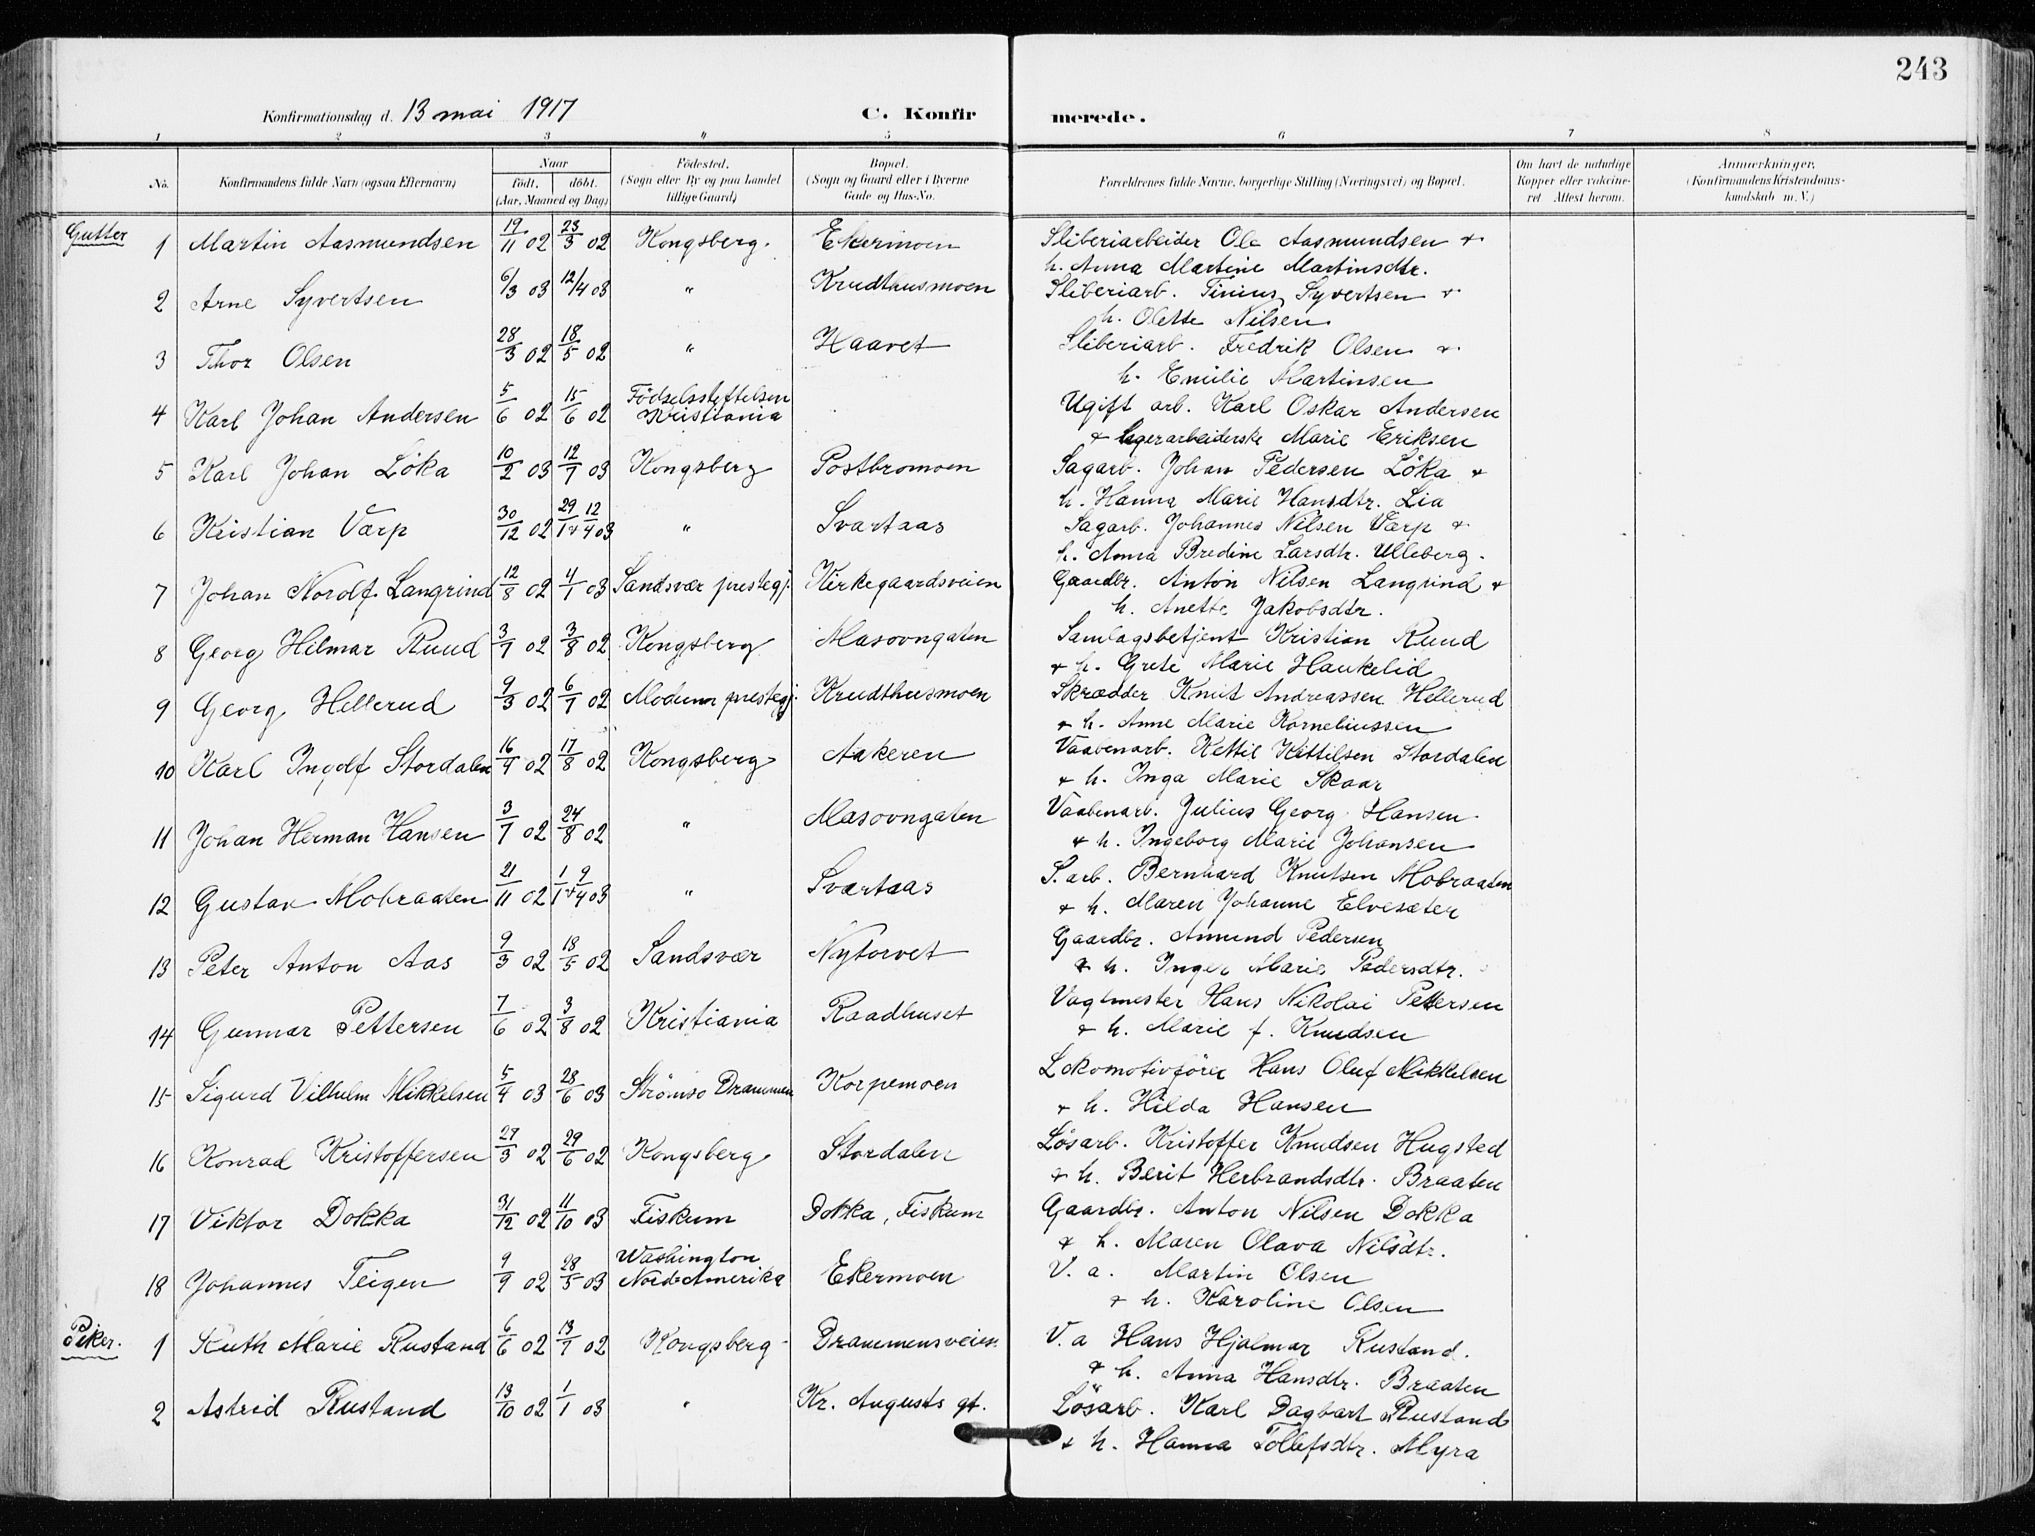 243
Konfirmationsdag d. 13 mai 1917 C. Konfirmerede.
1 2 3 4 5 6 7 8
No. Konfirmandens fulde Navn (ogsaa Efternavn) Naar födt, döbt. (Aar, Maaned og Dag) Födested. (Sogn eller By og paa Landet tillige Gaard) Bopæl. (Sogn og Gaard eller i Byerne Gade og Hus-No. Forældrenes fulde Navne, borgerlige Stilling (Næringsvei) og Bopæl. Om havt de naturlige Kopper eller vakcineret Attest herom. Anmærkninger, (Konfirmandens Kristendomskundskab m. V.)
Gutter 1 Martin Aasmundsen 19/11 02 23/3 02 Kongsberg. Ekermoen Sliberiarbeider Ole Aasmundsen +
h. Anna Martine Martinsdtr.
2 Arne Syvertsen 6/3 03 12/4 03 " Krudthusmoen Sliberiarb. Tinius Syvertsen +
h. Olette Nilsen
3 Thor Olsen 28/3 02 18/5 02 " Haavet Sliberiarb. Fredrik Olsen +
h. Emilie Martinsen
4 Karl Johan Andersen 5/6 02 15/6 02 Födselsstiftelsen Kristiania Ugift arb. Karl Oskar Andersen
+ lagerarbeiderske Marie Eriksen
5 Karl Johan Löka 10/2 03 12/7 03 Kongsberg Postbromoen Sagarb. Johan Pedersen Löka +
h. Hanna Marie Hansdtr. Lia
6 Kristian Varp 30/12 02 29/1 + 12/4 03 " Svartaas Sagarb. Johannes Nilsen Varp +
h. Anna Bredine Larsdtr. Ulleberg.
7 Johan Norolf Langrind 12/8 02 4/1 03 Sandsvær prestegj. Kirkegaardsveien Gaardbr. Anton Nilsen Langrind +
h. Anette Jakobsdtr.
8 Georg Hilmar Ruud 3/7 02 3/8 02 Kongsberg Masovngaten Samlagsbetjent Kristian Ruud
+ h. Grete Marie Haukelid
9 Georg Hellerud 9/3 02 6/7 02 Modum prestegj. Krudthusmoen Skrædder Knut Andreassen Hellerud
+ h. Anne Marie Korneliussen
10 Karl Ingolf Stordalen 16/7 02 17/8 02 Kongsberg Aakeren Vaabenarb. Kettil Kittilsen Stordalen
+ h. Inga Marie Skaar
11 Johan Herman Hansen 3/7 02 24/8 02 " Masovngaten Vaabenarb. Julius Georg Hansen
+ h. Ingeborg Marie Johansen
12 Gustav Mobraaten 21/11 02 1/1 + 9/4 03 " Svartaas S. arb. Bernhard Knutsen Mobraaten
+ h. Maren Johanne Elvesæter
13 Peter Anton Aas 9/3 02 18/5 02 Sandsvær Nytorvet Gaardbr. Amund Pedersen
+ h. Inger Marie Pedersdtr.
14 Gunnar Pettersen 7/6 02 3/8 02 Kristiania Raadhuset Vagtmester Hans Nikolai Pettersen
+ h. Marie f. Knudsen
15 Sigurd Vilhelm Mikkelsen 5/4 03 28/6 03 Strømsø Drammen Korpemoen Lokomotivfører Hans Oluf Mikkelsen
+ h. Hilda Hansen
16 Konrad Kristoffersen 27/3 02 29/6 02 Kongsberg Stordalen Løsarb. Kristoffer Knudsen Hugsted
+ h. Berit Herbrandsdtr. Braaten
17 Viktor Dokka 31/12 02 11/10 03 Fiskum Dokka, Fiskum Gaardbr. Anton Nilsen Dokka
+ h. Maren Olava Nilsdtr.
18 Johannes Teigen 9/9 02 28/5 03 Washington Nord-Amerika Ekermoen V. a. Martin Olsen
+ h. Karoline Olsen
Piker. 1 Ruth Marie Rustand 6/6 02 13/7 02 Kongsberg Drammensveien. V. a Hans Hjalmar Rustand.
+ h. Anna Hansdtr. Braaten
2 Astrid Rustand 13/10 02 1/1 03 " Kr. Augusts gt. Løsarb. Karl Dagbart Rustand
+ h. Hanna Tollefsdtr. Myra